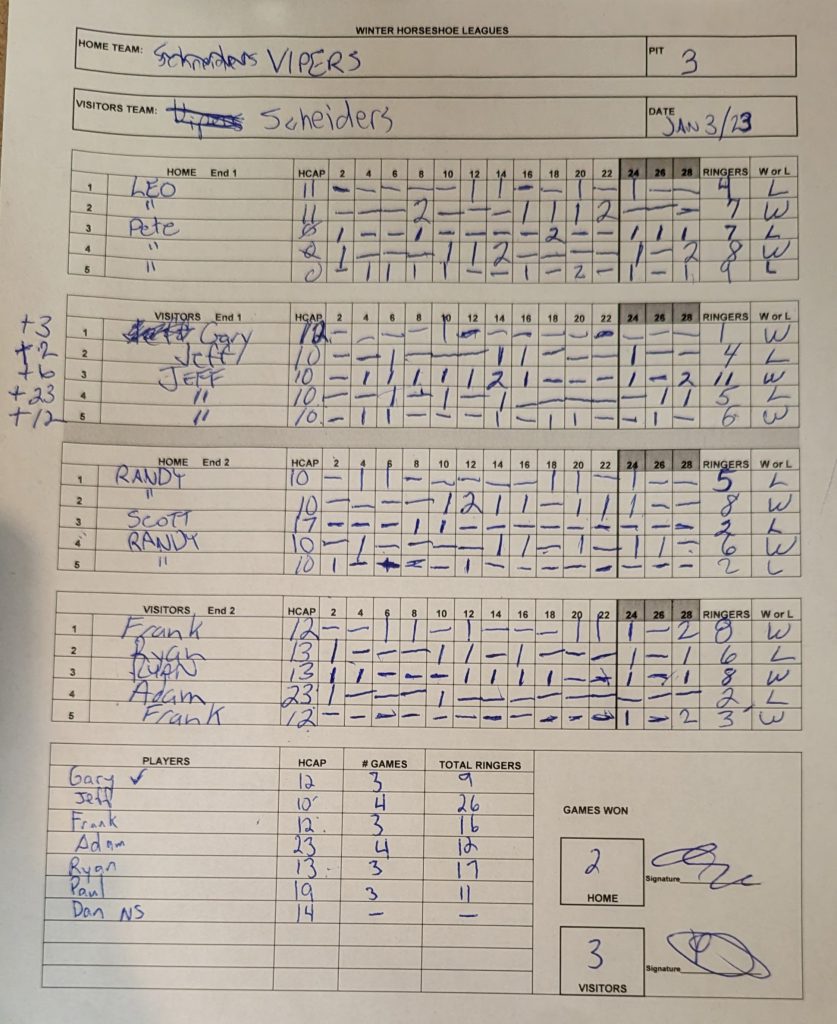 WINTER HORSESHOE LEAGUES
HOME TEAM: Schneiders VIPERS PIT 3
VISITORS TEAM: Vipers Scheiders DATE JAN 3/23
HOME End 1 HCAP 2 4 6 8 10 12 14 16 18 20 22 24 26 28 RINGERS W or L
1 LEO 11 - - - - - 1 1 - - 1 - 1 - - 4 L
2 " 11 - - - 2 - - - 1 1 1 2 - - - 7 W
3 Pete 1 - - 1 - - - - 2 - - 1 1 1 7 L
4 " 1 - - - 1 1 2 - - - - 1 - 2 8 W
5 " - 1 1 1 1 1 - 1 - 2 - 1 - 1 9 L
VISITORS End 1 HCAP 2 4 6 8 10 12 14 16 18 20 22 24 26 28 RINGERS W or L
+3 1 Gary 12 - - - - 1 - - - - - - - - - 1 W
+2 2 Jeff 10 - - 1 - - - 1 1 - - - 1 - - 4 L
+6 3 JEFF 10 - 1 1 1 1 1 2 1 - - - 1 - 2 11 W
+23 4 " 10 - - 1 - 1 - 1 - - - - - 1 1 5 L
+12 5 " 10 - 1 1 - - - 1 - 1 1 - - 1 - 6 W
HOME End 2 HCAP 2 4 6 8 10 12 14 16 18 20 22 24 26 28 RINGERS W or L
1 RANDY 10 - 1 1 - - - - - 1 1 - 1 - - 5 L
2 " 10 - - - - 1 2 1 1 - 1 1 1 - - 8 W
3 SCOTT 17 - - - 1 1 - - - - - - - - - 2 L
4 RANDY 10 - 1 - - - - 1 1 - 1 - 1 1 - 6 W
5 " 10 1 - - - - 1 - - - - - - - - 2 L
VISITORS End 2 HCAP 2 4 6 8 10 12 14 16 18 20 22 24 26 28 RINGERS W or L
1 Frank 12 - - 1 1 - 1 - - - 1 1 1 - 2 8 W
2 Ryan 13 1 - - - 1 1 - 1 - - - 1 - 1 6 L
3 RYAN 13 1 1 - - - 1 1 1 1 - - 1 - 1 8 W
4 Adam 23 1 - - - 1 - - - - - - - - - 2 L
5 Frank 12 - - - - - - - - - - - 1 - 2 3 W
PLAYERS HCAP # GAMES TOTAL RINGERS
Gary ✓ 12 3 9
Jeff 10 4 26
Frank 12 3 16
Adam 23 4 12
Ryan 13 3 17
Paul 19 3 11
Dan NS 14 - -
GAMES WON
2 Signature
HOME
3 Signature
VISITORS